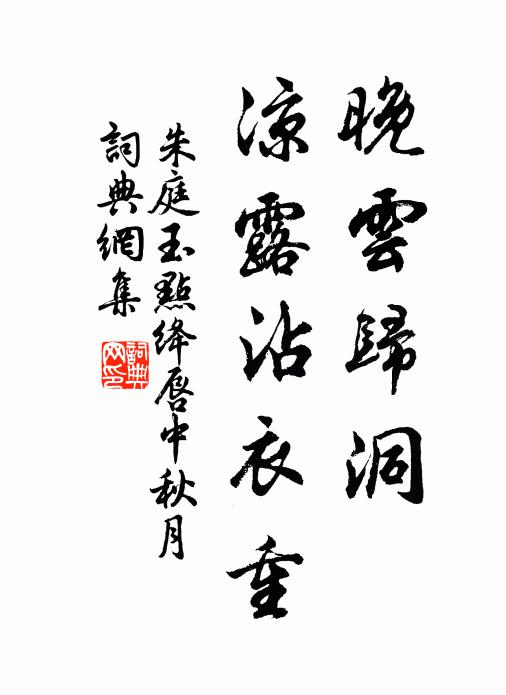 晚雲歸洞
涼露沾衣重
朱庭玉點絳唇中秋月
詞典網集
詞典網印